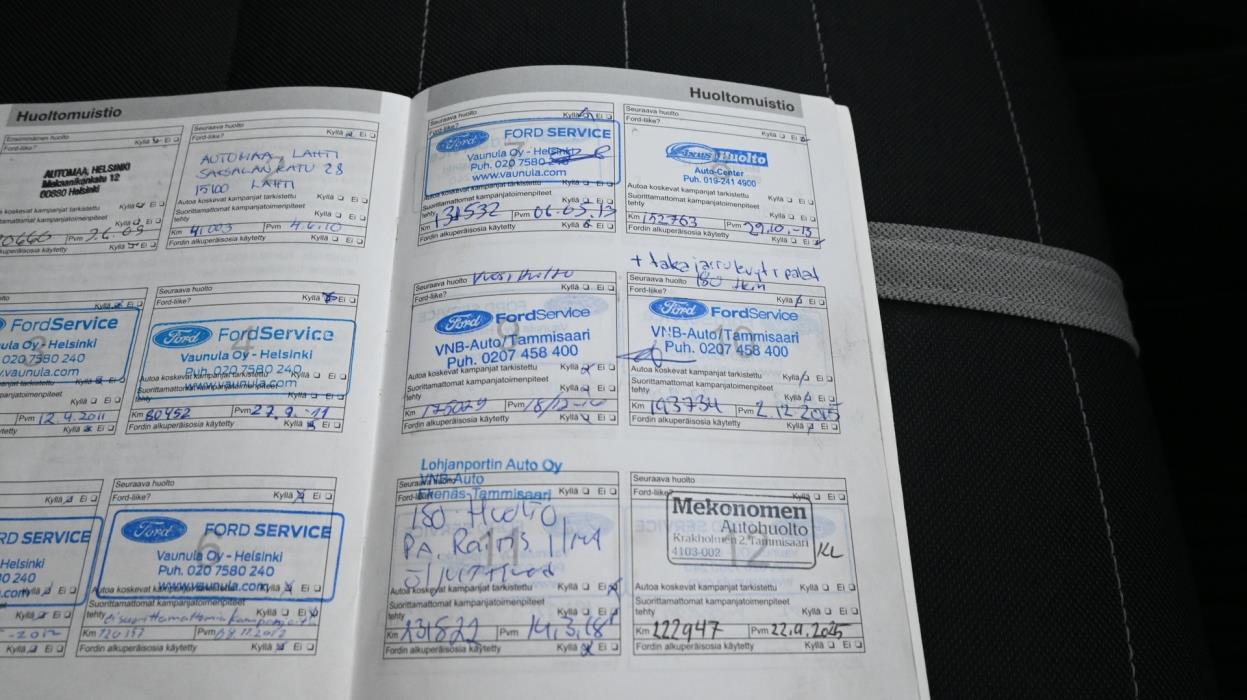 Huoltomuistio
Ensimmäinen huolto
Ford-liike? Kyllä Ei
AUTOMAA, HELSINKI
Mekaanikonkatu 12
00880 Helsinki
koskevat kampanjat tarkistettu Kyllä
Kyllä Ei
Pvm
alkuperäisosia käytetty Kyllä Ei
Seuraava huolto
Ford-liike? Kyllä Ei
AUTOMAA LAHTI
SAKSALANKATU 28
15100 LAHTI
Autoa koskevat kampanjat tarkistettu
Kyllä Ei
Suorittamattomat kampanjatoimenpiteet
tehty Kyllä Ei
Km 41003 Pvm 4.6.10
Fordin alkuperäisosia käytetty Kyllä Ei
Kyllä Ei
FordService
020 7580 240
Kyllä Ei
Kyllä Ei
Pvm 12.4.2011
Kyllä Ei
Seuraava huolto
Ford-liike? Kyllä Ei
Ford FordService
4
Vaunula Oy - Helsinki
Puh. 020 7580 240
www.vaunula.com
Autoa koskevat kampanjat tarkistettu
Kyllä Ei
Suorittamattomat kampanjatoimenpiteet
tehty Kyllä Ei
Km 80452 Pvm 27.9.-11
Fordin alkuperäisosia käytetty Kyllä Ei
Kyllä Ei
SERVICE
Helsinki
Kyllä Ei
Kyllä Ei
-2012
Kyllä Ei
Seuraava huolto
Ford-liike? Kyllä Ei
Ford FORD SERVICE
6
Vaunula Oy - Helsinki
Puh. 020 7580 240
www.vaunula.com
Autoa koskevat kampanjat tarkistettu Kyllä Ei
Suorittamattomat kampanjatoimenpiteet
tehty Kyllä Ei
Km Pvm
Fordin alkuperäisosia käytetty Kyllä Ei
Huoltomuistio
Seuraava huolto
Ford-liike? Kyllä Ei
Ford FORD SERVICE
7
Vaunula Oy - Helsinki
Puh. 020 7580 240
www.vaunula.com
Autoa koskevat kampanjat tarkistettu Kyllä Ei
Suorittamattomat kampanjatoimenpiteet
tehty Kyllä Ei
Km 131532 Pvm 06.05.13
Fordin alkuperäisosia käytetty Kyllä Ei
Seuraava huolto
Ford-liike? Kyllä Ei
Huolto
Auto-Center
Puh. 019-241 4900
Autoa koskevat kampanjat tarkistettu
Kyllä Ei
Suorittamattomat kampanjatoimenpiteet
tehty Kyllä Ei
Km 152763 Pvm 29.10.-13
Fordin alkuperäisosia käytetty Kyllä Ei
Seuraava huolto Vuosihuolto
Ford-liike? Kyllä Ei
Ford FordService
9
VNB-Auto/Tammisaari
Puh. 0207 458 400
Autoa koskevat kampanjat tarkistettu
Kyllä Ei
Suorittamattomat kampanjatoimenpiteet
tehty Kyllä Ei
Km 175029 Pvm
Fordin alkuperäisosia käytetty Kyllä Ei
+ taka jarrulevyt + palat
Seuraava huolto 180 tkm
Ford-liike? Kyllä Ei
Ford FordService
10
VNB-Auto/Tammisaari
Puh. 0207 458 400
Autoa koskevat kampanjat tarkistettu
Kyllä Ei
Suorittamattomat kampanjatoimenpiteet
tehty Kyllä Ei
Km 193734 Pvm 2.12.2015
Fordin alkuperäisosia käytetty Kyllä Ei
Lohjanportin Auto Oy
VNB-Auto
Ekenäs-Tammisaari
Kyllä Ei
ISO Huolto
11
Autoa koskevat kampanjat tarkistettu Kyllä Ei
Suorittamattomat kampanjatoimenpiteet
tehty Kyllä Ei
Km 231822 Pvm 14.3.18
Fordin alkuperäisosia käytetty Kyllä Ei
Seuraava huolto
Ford-liike? Kyllä Ei
Mekonomen
Autohuolto
Krakholmen 2, Tammisaari
4103-002
12
Autoa koskevat kampanjat tarkistettu
Kyllä Ei
Suorittamattomat kampanjatoimenpiteet
tehty Kyllä Ei
Km 222947 Pvm 22.9.2025
Fordin alkuperäisosia käytetty Kyllä Ei